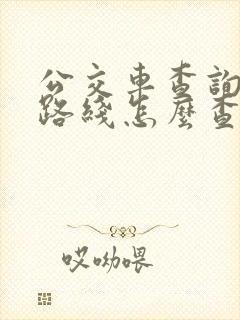 公交車查詢
路綫怎麼查
哎呦喂